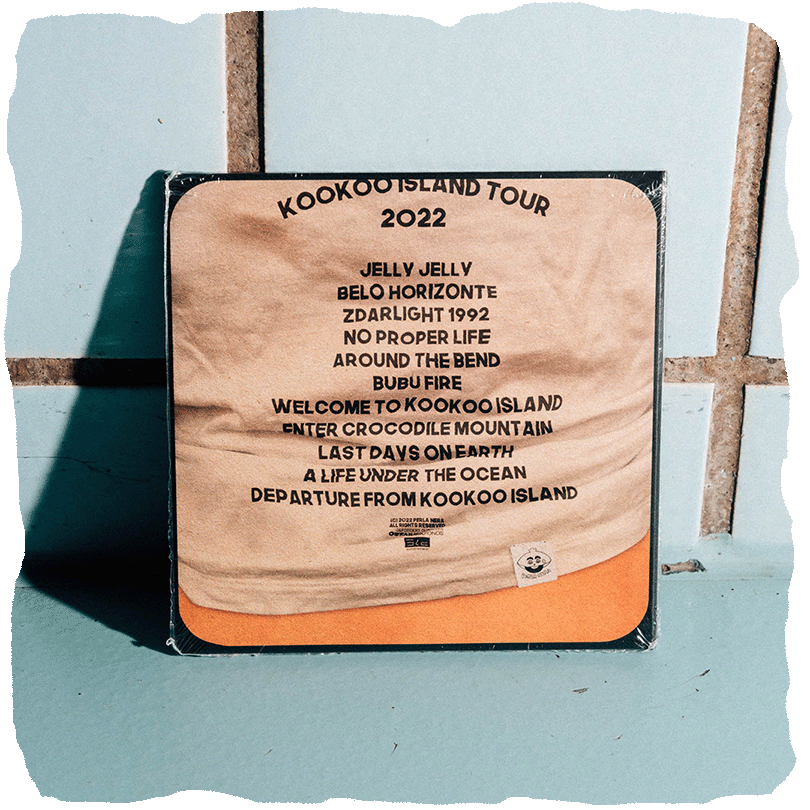 KOOKOO ISLAND TOUR
2022
JELLY JELLY
BELO HORIZONTE
ZDARLIGHT 1992
NO PROPER LIFE
AROUND THE BEND
BUBU FIRE
WELCOME TO KOOKOO ISLAND
ENTER CROCODILE MOUNTAIN
LAST DAYS ON EARTH
A LIFE UNDER THE OCEAN
DEPARTURE FROM KOOKOO ISLAND
(C) 2022 PERLA NERA
ALL RIGHTS RESERVED